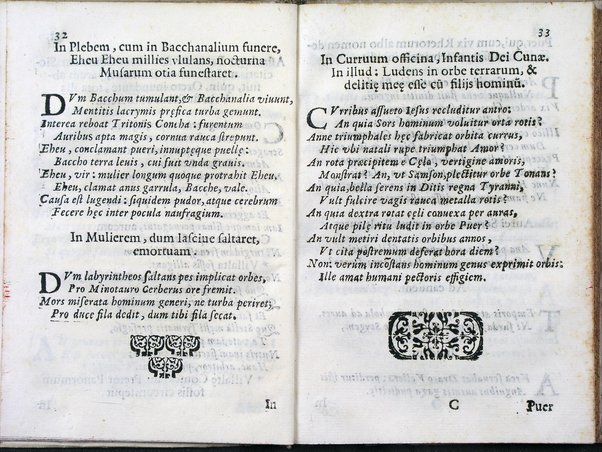 32
In Plebem, cum in Bacchanalium funere,
Eheu Eheu millies vlulans, nocturna
Musarum otia funestaret.
DVm Bacchum tumulant, & Bacchanalia viuunt,
Mentitis lacrymis prefica turba gemunt.
Interea reboat Tritonis Concha: furentûm
Auribus apta magis, cornua rauca strepunt.
Eheu, conclamant pueri, innupteque puelle:
Baccho terra leuis, cui fuit vnda grauis.
Eheu, vir: mulier longum quoque protrahit Eheu.
Eheu, clamat anus garrula, Bacche, vale.
Causa est lugendi: siquidem pudor, atque cerebrum
Fecere hęc inter pocula naufragium.
In Mulierem, dum lasciue saltaret,
emortuam.
DVm labyrintheos saltans pes implicat orbes,
Pro Minotauro Cerberus ore fremit.
Mors miserata hominum generi, ne turba periret;
Pro duce fila dedit, dum tibi fila secat.
In
33
In Curruum officina, Infantis Dei Cunæ.
In illud: Ludens in orbe terrarum, &
delitię meę esse cũ filijs hominũ.
CVrribus assueto Iesus recluditur antro:
An quia Sors hominum voluitur orta rotis?
Anne triumphales hęc fabricat orbita currus,
Hic vbi natali rupe triumphat Amor?
An rota præcipitem è Cęlo, vertigine amoris,
Monstrat? An, vt Samson, plectitur orbe Tonans?
An quia, bella serens in Ditis regna Tyranni,
Vult fulcire vagis rauca metalla rotis?
An quia dextra rotat cęli conuexa per auras,
Atque pilę ritu ludit in orbe Puer?
An vult metiri dentatis orbibus annos,
Vt cita postremum deferat hora diem?
Non: verùm incõstans hominum genus exprimit orbis:
Ille amat humani pectoris effigiem.
C
Puer